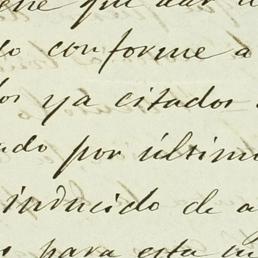 que dar
do conforme a
los ya citados
ado por último
inducido de a
para esta